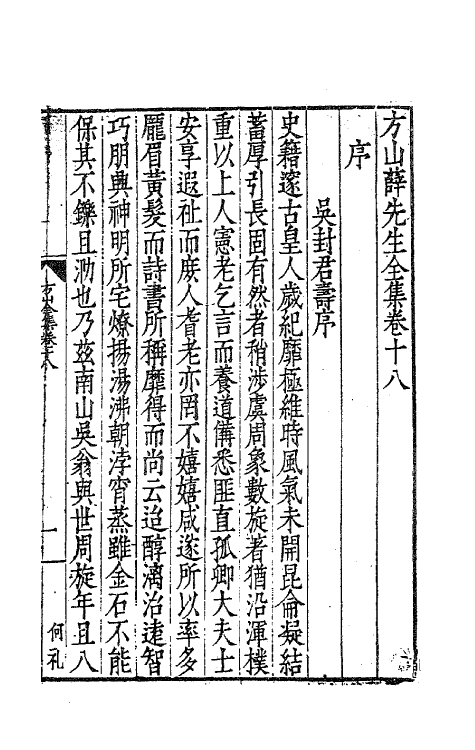 方山薛先生全集卷十八
序
吳封君壽序
史籍邃古皇人歲紀靡極維時風氣未開昆侖凝結
蓄厚引長固有然者稍涉虞周象數旋著猶沿渾樸
重以上人憲老乞言而養道備悉匪直孤卿大夫士
安享遐祉而庶人耆老亦罔不嬉嬉咸遂所以率多
厖眉黃髮而詩書所稱靡得而尚云迨醇漓治逮智
巧朋興神明所宅燎揚湯沸朝浡宵蒸雖金石不能
保其不鑠且泐也乃茲南山吳翁與世周旋年且八
方山全集卷十八
一
何礼